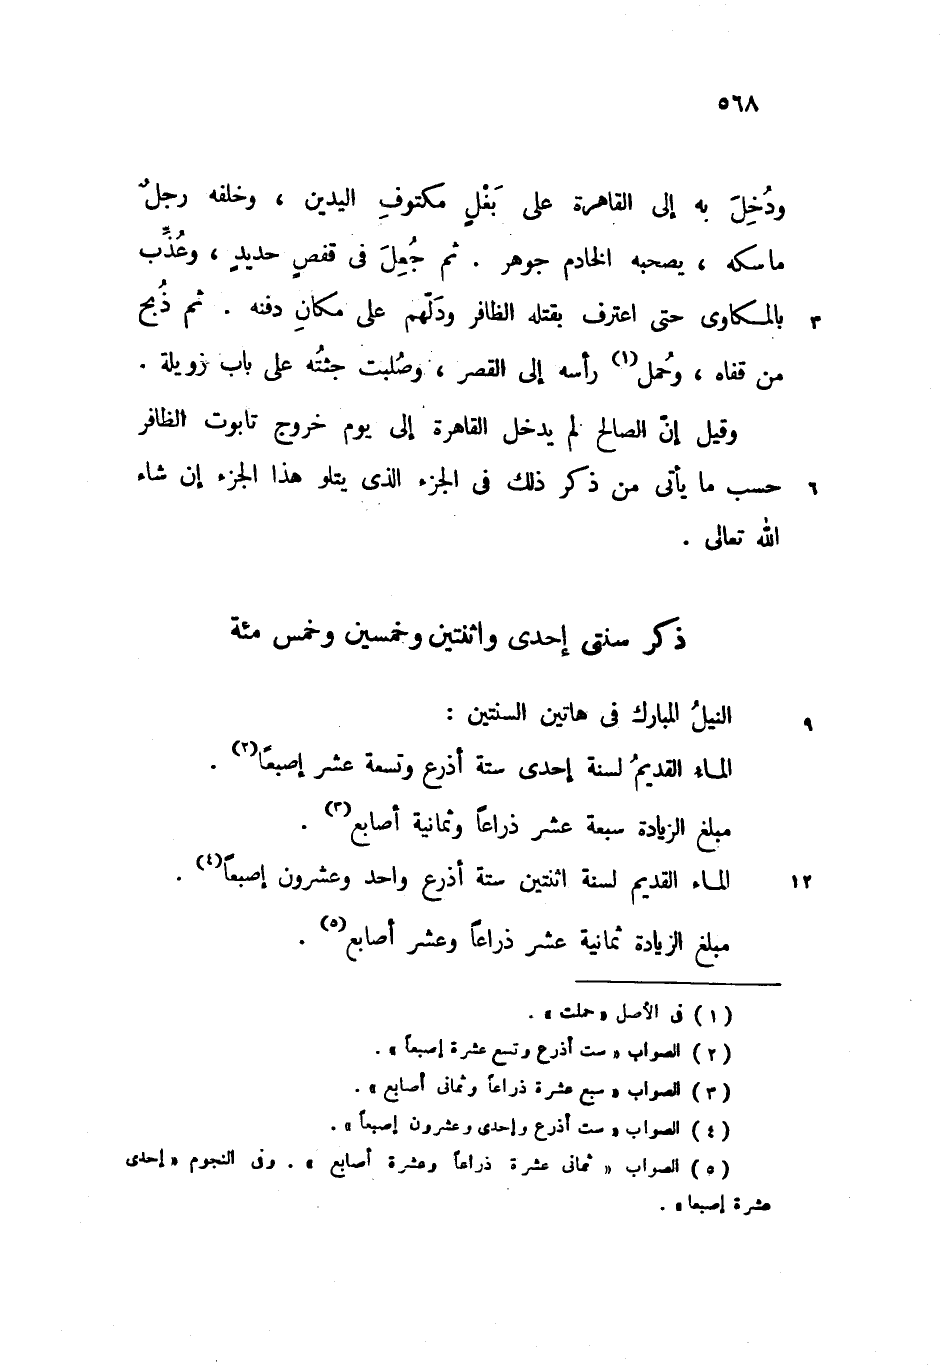 ٥٦٨
ودُخِلَ به إلى القاهرة على بَغْلٍ مكتوفِ اليدين ، وخلفه رجلٌ
ماسكه ، يصحبه الخادم جوهر . ثم جُعِلَ فى قفصٍ حديدٍ ، وعُذِّب
٣ بالمكاوى حتى اعترف بقتله الظافر ودَلّهم على مكانِ دفنه . ثم ذُبح
من قفاه ، وحُمل(١) رأسه إلى القصر ، وصُلبت جثتُه على باب زويلة .
وقيل إنّ الصالح لم يدخل القاهرة إلى يوم خروج تابوت الظافر
٦ حسب ما يأتى من ذكر ذلك فى الجزء الذى يتلو هذا الجزء إن شاء
الله تعالى .
ذكر سنتى إحدى واثنتين وخمسين وخمس مئة
٩ النيلُ المبارك فى هاتين السنتين :
الماء القديمُ لسنة إحدى ستة أذرع وتسعة عشر إصبعًا(٢) .
مبلغ الزيادة سبعة عشر ذراعاً وثمانية أصابع(٣) .
١٢ الماء القديم لسنة اثنتين ستة أذرع واحد وعشرون إصبعاً(٤) .
مبلغ الزيادة ثمانية عشر ذراعاً وعشر أصابع(٥) .
(١) فى الأصل «حملت» .
(٢) الصواب «ست أذرع وتسع عشرة إصبعاً» .
(٣) الصواب «سبع عشرة ذراعاً وثمانى أصابع» .
(٤) الصواب «ست أذرع وإحدى وعشرون إصبعاً» .
(٥) الصواب «ثمانى عشرة ذراعاً وعشرة أصابع» . وفى النجوم «إحدى
عشرة إصبعا» .